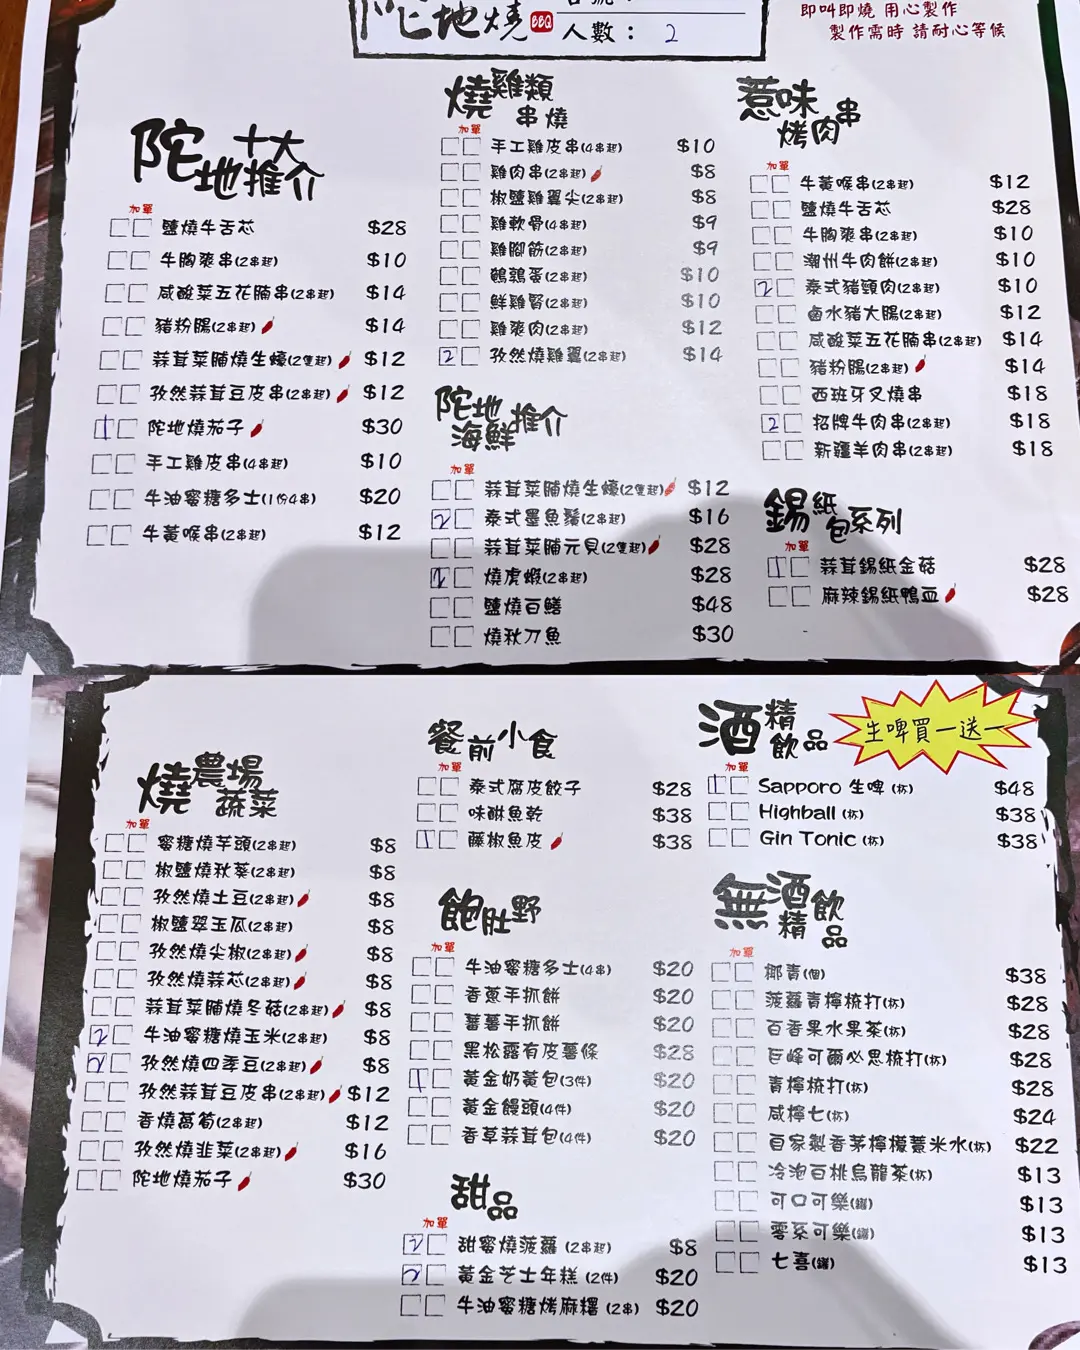 陀地燒 BBQ
人數： 2
即叫即燒 用心製作
製作需時 請耐心等候
陀地十大推介
加單
鹽燒牛舌芯 $28
牛胸爽串(2串起) $10
咸酸菜五花腩串(2串起) $14
豬粉腸(2串起) $14
蒜茸菜脯燒生蠔(2隻起) $12
孜然蒜茸豆皮串(2串起) $12
1 陀地燒茄子 $30
手工雞皮串(4串起) $10
牛油蜜糖多士(1份4串) $20
牛黃喉串(2串起) $12
燒雞類串燒
加單
手工雞皮串(4串起) $10
雞肉串(2串起) $8
椒鹽雞翼尖(2串起) $8
雞軟骨(4串起) $9
雞腳筋(2串起) $9
鵪鶉蛋(2串起) $10
鮮雞腎(2串起) $10
雞爽肉(2串起) $12
2 孜然燒雞翼(2串起) $14
陀地海鮮推介
加單
蒜茸菜脯燒生蠔(2隻起) $12
2 泰式墨魚鬚(2串起) $16
蒜茸菜脯元貝(2隻起) $28
2 燒虎蝦(2串起) $28
鹽燒白鱔 $48
燒秋刀魚 $30
惹味烤肉串
加單
牛黃喉串(2串起) $12
鹽燒牛舌芯 $28
牛胸爽串(2串起) $10
潮州牛肉餅(2串起) $10
2 泰式豬頸肉(2串起) $10
鹵水豬大腸(2串起) $12
咸酸菜五花腩串(2串起) $14
豬粉腸(2串起) $14
西班牙叉燒串 $18
2 招牌牛肉串(2串起) $18
新疆羊肉串(2串起) $18
錫紙包系列
加單
1 蒜茸錫紙金菇 $28
麻辣錫紙鴨血 $28
燒農場蔬菜
加單
蜜糖燒芋頭(2串起) $8
椒鹽燒秋葵(2串起) $8
孜然燒土豆(2串起) $8
椒鹽翠玉瓜(2串起) $8
孜然燒尖椒(2串起) $8
孜然燒蒜芯(2串起) $8
蒜茸菜脯燒冬菇(2串起) $8
2 牛油蜜糖燒玉米(2串起) $8
2 孜然燒四季豆(2串起) $8
孜然蒜茸豆皮串(2串起) $12
香燒萵筍(2串起) $12
孜然燒韭菜(2串起) $16
陀地燒茄子 $30
餐前小食
加單
泰式腐皮餃子 $28
味醂魚乾 $38
1 藤椒魚皮 $38
飽肚野
加單
牛油蜜糖多士(4串) $20
香蔥手抓餅 $20
蕃薯手抓餅 $20
黑松露有皮薯條 $28
1 黃金奶黃包(3件) $20
黃金饅頭(4件) $20
香草蒜茸包(4件) $20
甜品
加單
2 甜蜜燒菠蘿 (2串起) $8
2 黃金芝士年糕 (2件) $20
牛油蜜糖烤麻糬 (2串) $20
酒精飲品
生啤買一送一
加單
1 Sapporo 生啤 (杯) $48
Highball (杯) $38
Gin Tonic (杯) $38
無酒精飲品
加單
椰青(個) $38
菠蘿青檸梳打(杯) $28
百香果水果茶(杯) $28
巨峰可爾必思梳打(杯) $28
青檸梳打(杯) $28
咸檸七(杯) $24
自家製香茅檸檬薏米水(杯) $22
冷泡白桃烏龍茶(杯) $13
可口可樂(罐) $13
零系可樂(罐) $13
七喜(罐) $13